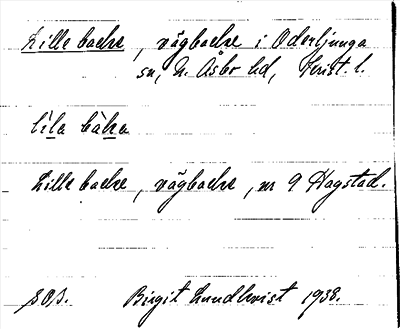 Lille backe, vägbacke i Oderljunga
sn, N. Åsbo hd, Krist. l.
lila bàka
Lille backe, vägbacke, nr 9 Hagstad.
SOS. Birgit Lundkvist 1938.